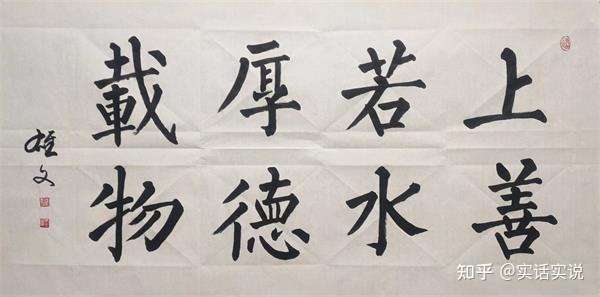 上善
若水
厚德
載物
文
知乎 @实话实说